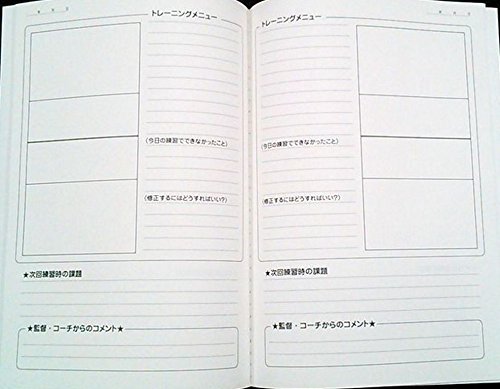 トレーニングメニュー
(今日の練習でできなかったこと)
(修正するにはどうすればいい?)
★次回練習時の課題
★監督・コーチからのコメント★
トレーニングメニュー
(今日の練習でできなかったこと)
(修正するにはどうすればいい?)
★次回練習時の課題
★監督・コーチからのコメント★